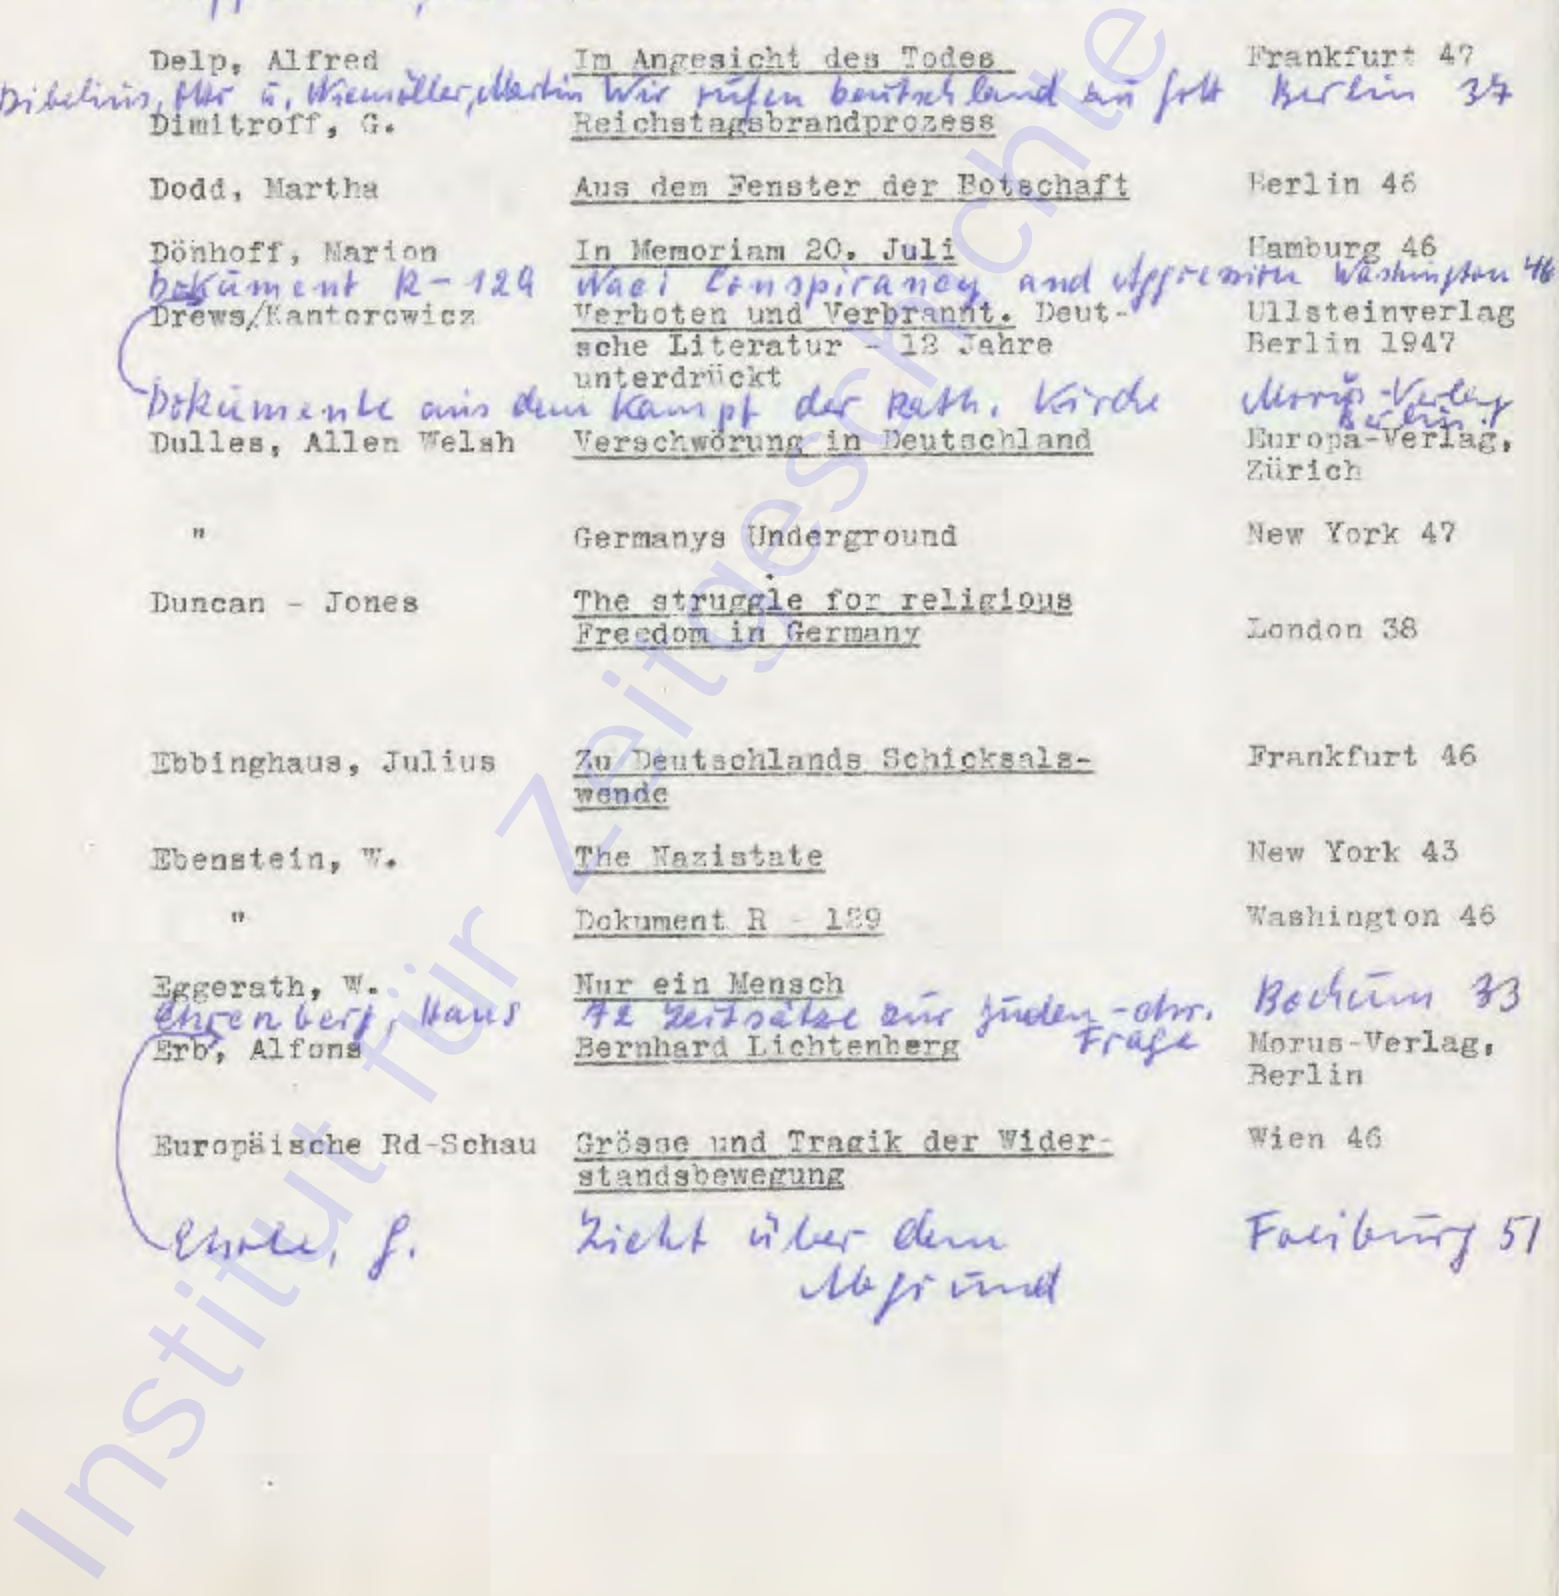 Delp, Alfred Im Angesicht des Todes Frankfurt 47
Dibelius, Otto u. Niemöller, Martin Wir rufen Deutschland zu Gott Berlin 37
Dimitroff, G. Reichstagsbrandprozess
Dodd, Martha Aus dem Fenster der Botschaft Berlin 46
Dönhoff, Marion In Memoriam 20. Juli Hamburg 46
Dokument R-129 Nazi Conspirancy and Aggression Washington 46
Drews/Kantorowicz Verboten und Verbrannt. Deut- Ullsteinverlag
sche Literatur - 12 Jahre Berlin 1947
unterdrückt
Dokumente aus dem Kampf der kath. Kirche Morus-Verlag
Berlin
Dulles, Allen Welsh Verschwörung in Deutschland Europa-Verlag,
Zürich
" Germanys Underground New York 47
Duncan - Jones The struggle for religious
Freedom in Germany London 38
Ebbinghaus, Julius Zu Deutschlands Schicksals- Frankfurt 46
wende
Ebenstein, W. The Nazistate New York 43
" Dokument R - 129 Washington 46
Eggerath, W. Nur ein Mensch
Ehrenberg, Hans 72 Leitsätze zur juden-chr. Bochum 33
Frage
Erb, Alfons Bernhard Lichtenberg Morus-Verlag,
Berlin
Europäische Rd-Schau Grösse und Tragik der Wider- Wien 46
standsbewegung
G. Licht über dem Freiburg 51
Abgrund
Institut für Zeitgeschichte